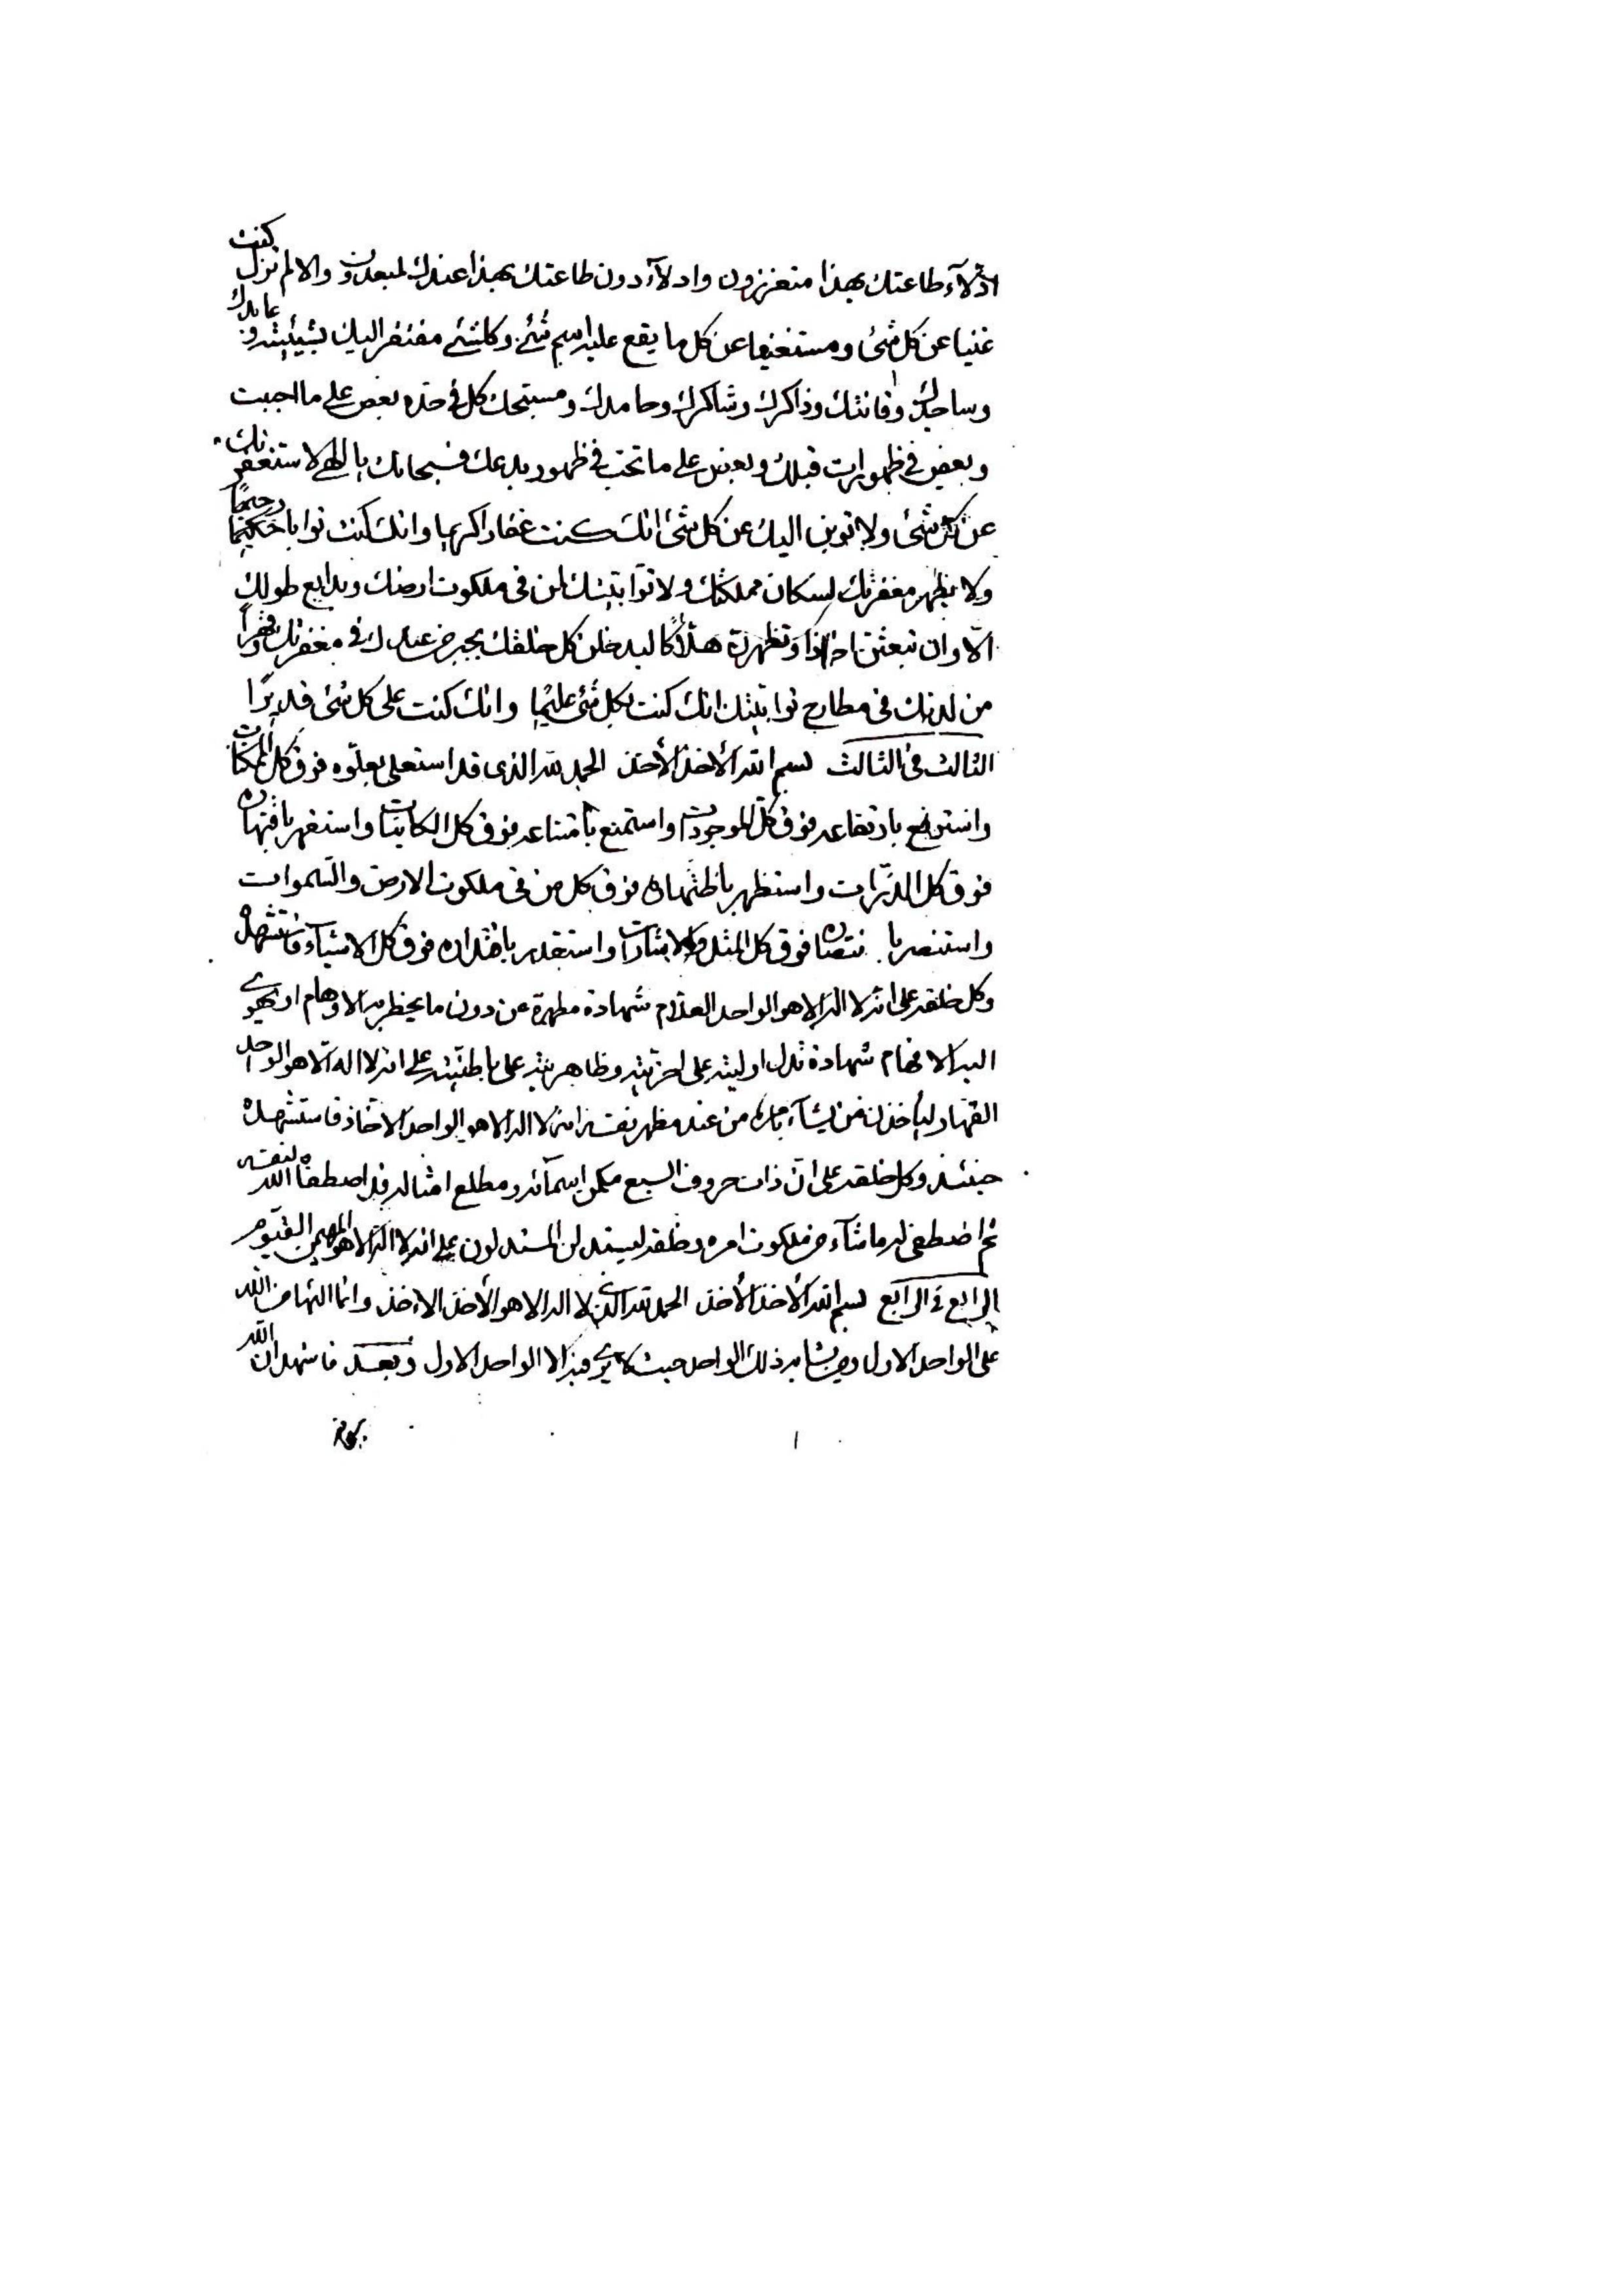 ادلاء طاعتك بهذا متعززون وادلآء دون طاعتك بهذا عندك لمبعدون والا لم تزل كنت
غنيا عن كل شئ ومستغنيا عن كل ما يقع عليه اسم شئ وكلشئ مفتقر اليك بشيئيته و عابدك
وساجدك وقانتك وذاكرك وشاكرك وحامدك ومسبحك كل في حده بعض على ما احببت
وبعض في ظهورات قبلك وبعض على ما تحب في ظهور بدعك فسبحانك يا الهي لاستغفرنك
عن كل شئ ولاتوبن اليك عن كل شئ انك كنت غفارا كريما وانك كنت توابا حكيما رحيما
ولا يظهر مغفرتك لسكان مملكتك ولا توابيتك لمن في ملكوت ارضك وبدايع طولك
الا وان تبعثن اخاذا وتظهرن هلاكا ليدخلن كل خلقك بجبر من عندك في مغفرتك وقهرا
من لدنك في مطارح توابيتك انك كنت بكل شئ عليما وانك كنت على كل شئ قديرا
الثالث في الثالث بسم الله الأخذ الأخذ الحمد لله الذي قد استعلى بعلوه فوق كل الممكنات
واسترفع بارتفاعه فوق كل الموجودات واستمنع بامتناعه فوق كل الكاينات واستقهر باقتهاره
فوق كل الذرات واستظهر باظتهاره فوق كل من في ملكوت الارض والسموات
واستنصر با نتصاره فوق كل المثل والاشارات واستقدر باقتداره فوق كل الاشياء فاستشهده
وكل خلقه على انه لا اله الا هو الواحد العلام شهادة مطهرة عن دون ما يخطر به الاوهام او يهوى
اليه الافهام شهادة تدل اوليته على اخريته وظاهريته على باطنيته على انه لا اله الا هو الواحد
القهار ليأخذن من يشآء بامره من عند مظهر نفسه انه لا اله الا هو الواحد الاخاذ فاستشهده
حينئذ وكل خلقه على ان ذات حروف السبع مكمن اسمآئه ومطلع امثاله قد اصطفاه الله لنفسه
ثم اصطفى له ما شآء من ملكوت امره وخلقه ليستدلن المستدلون على انه لا اله الا هو المهيمن القيوم
الرابع في الرابع بسم الله الأخذ الأخذ الحمد لله الذي لا اله الا هو الأخذ الاخذ وانما البهاء من الله
على الواحد الاول ومن يشابه ذلك الواحد حيث لا يرى فيه الا الواحد الاول وبعد فاشهد ان الله